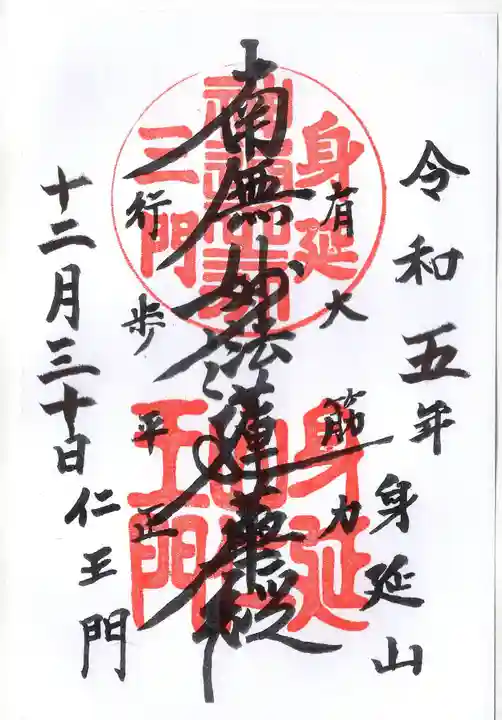 令和五年
身延山
有大筋力
南無妙法蓮華経
行歩平正
十二月三十日
仁王門
身延
三門
身延
王門